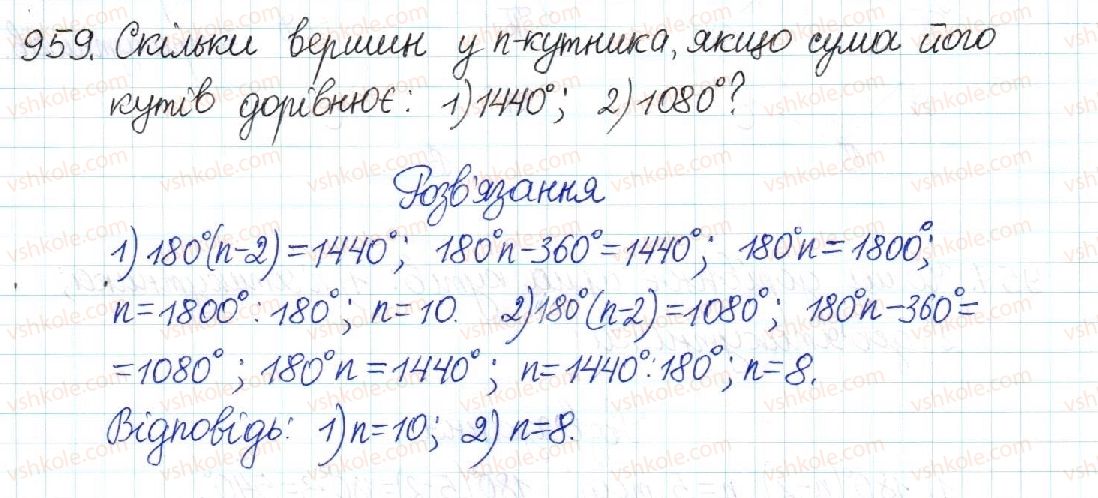 959. Скільки вершин у n-кутника, якщо сума його
кутів дорівнює: 1) 1440°; 2) 1080°?
Розв'язання
1) 180°(n-2)=1440°; 180°n-360°=1440°; 180°n=1800°;
n=1800°:180°; n=10. 2) 180°(n-2)=1080°; 180°n-360°=
=1080°; 180°n=1440°; n=1440°:180°; n=8.
Відповідь: 1) n=10; 2) n=8.